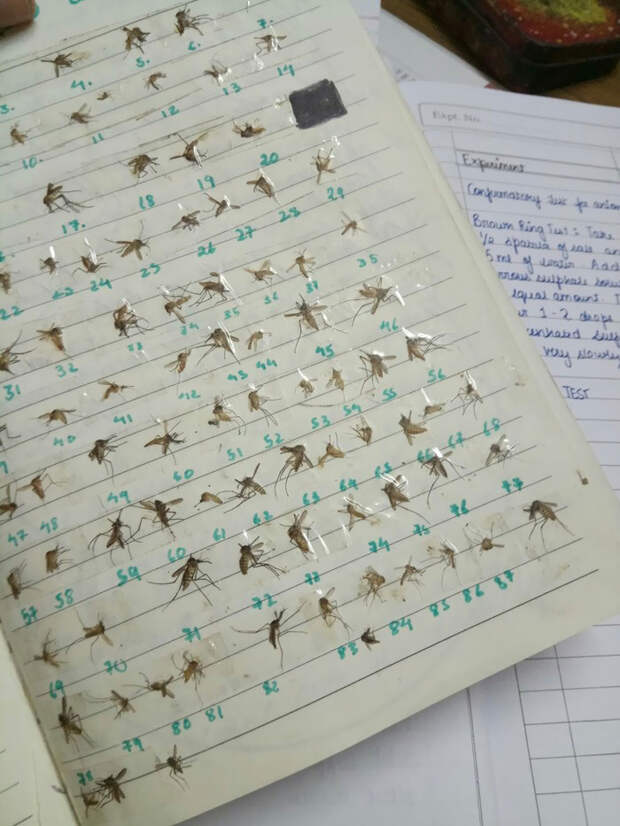 3. 4. 5. 6. 7.
10. 11 12 13 14
17. 18 19 20
22 23 24 25 26 27 28 29
31 32 33 34 35 36 37 35
40 41 42 43 44 45 46
47 48 49 50 51 52 53 54 55 56
57 58 59 60 61 62 63 64 65 66 67 68
69 70 71 72 73 74 75 76 77
78 79 80 81 82 83 84 85 86 87
Expt. No.
Experiment
Confirmatory test for anion
Brown Ring Test: Take
1/2 spatula of salt an
5 ml of water. Add
rrous sulphate solu
equal amount. T
1-2 drops
very slowly
TEST